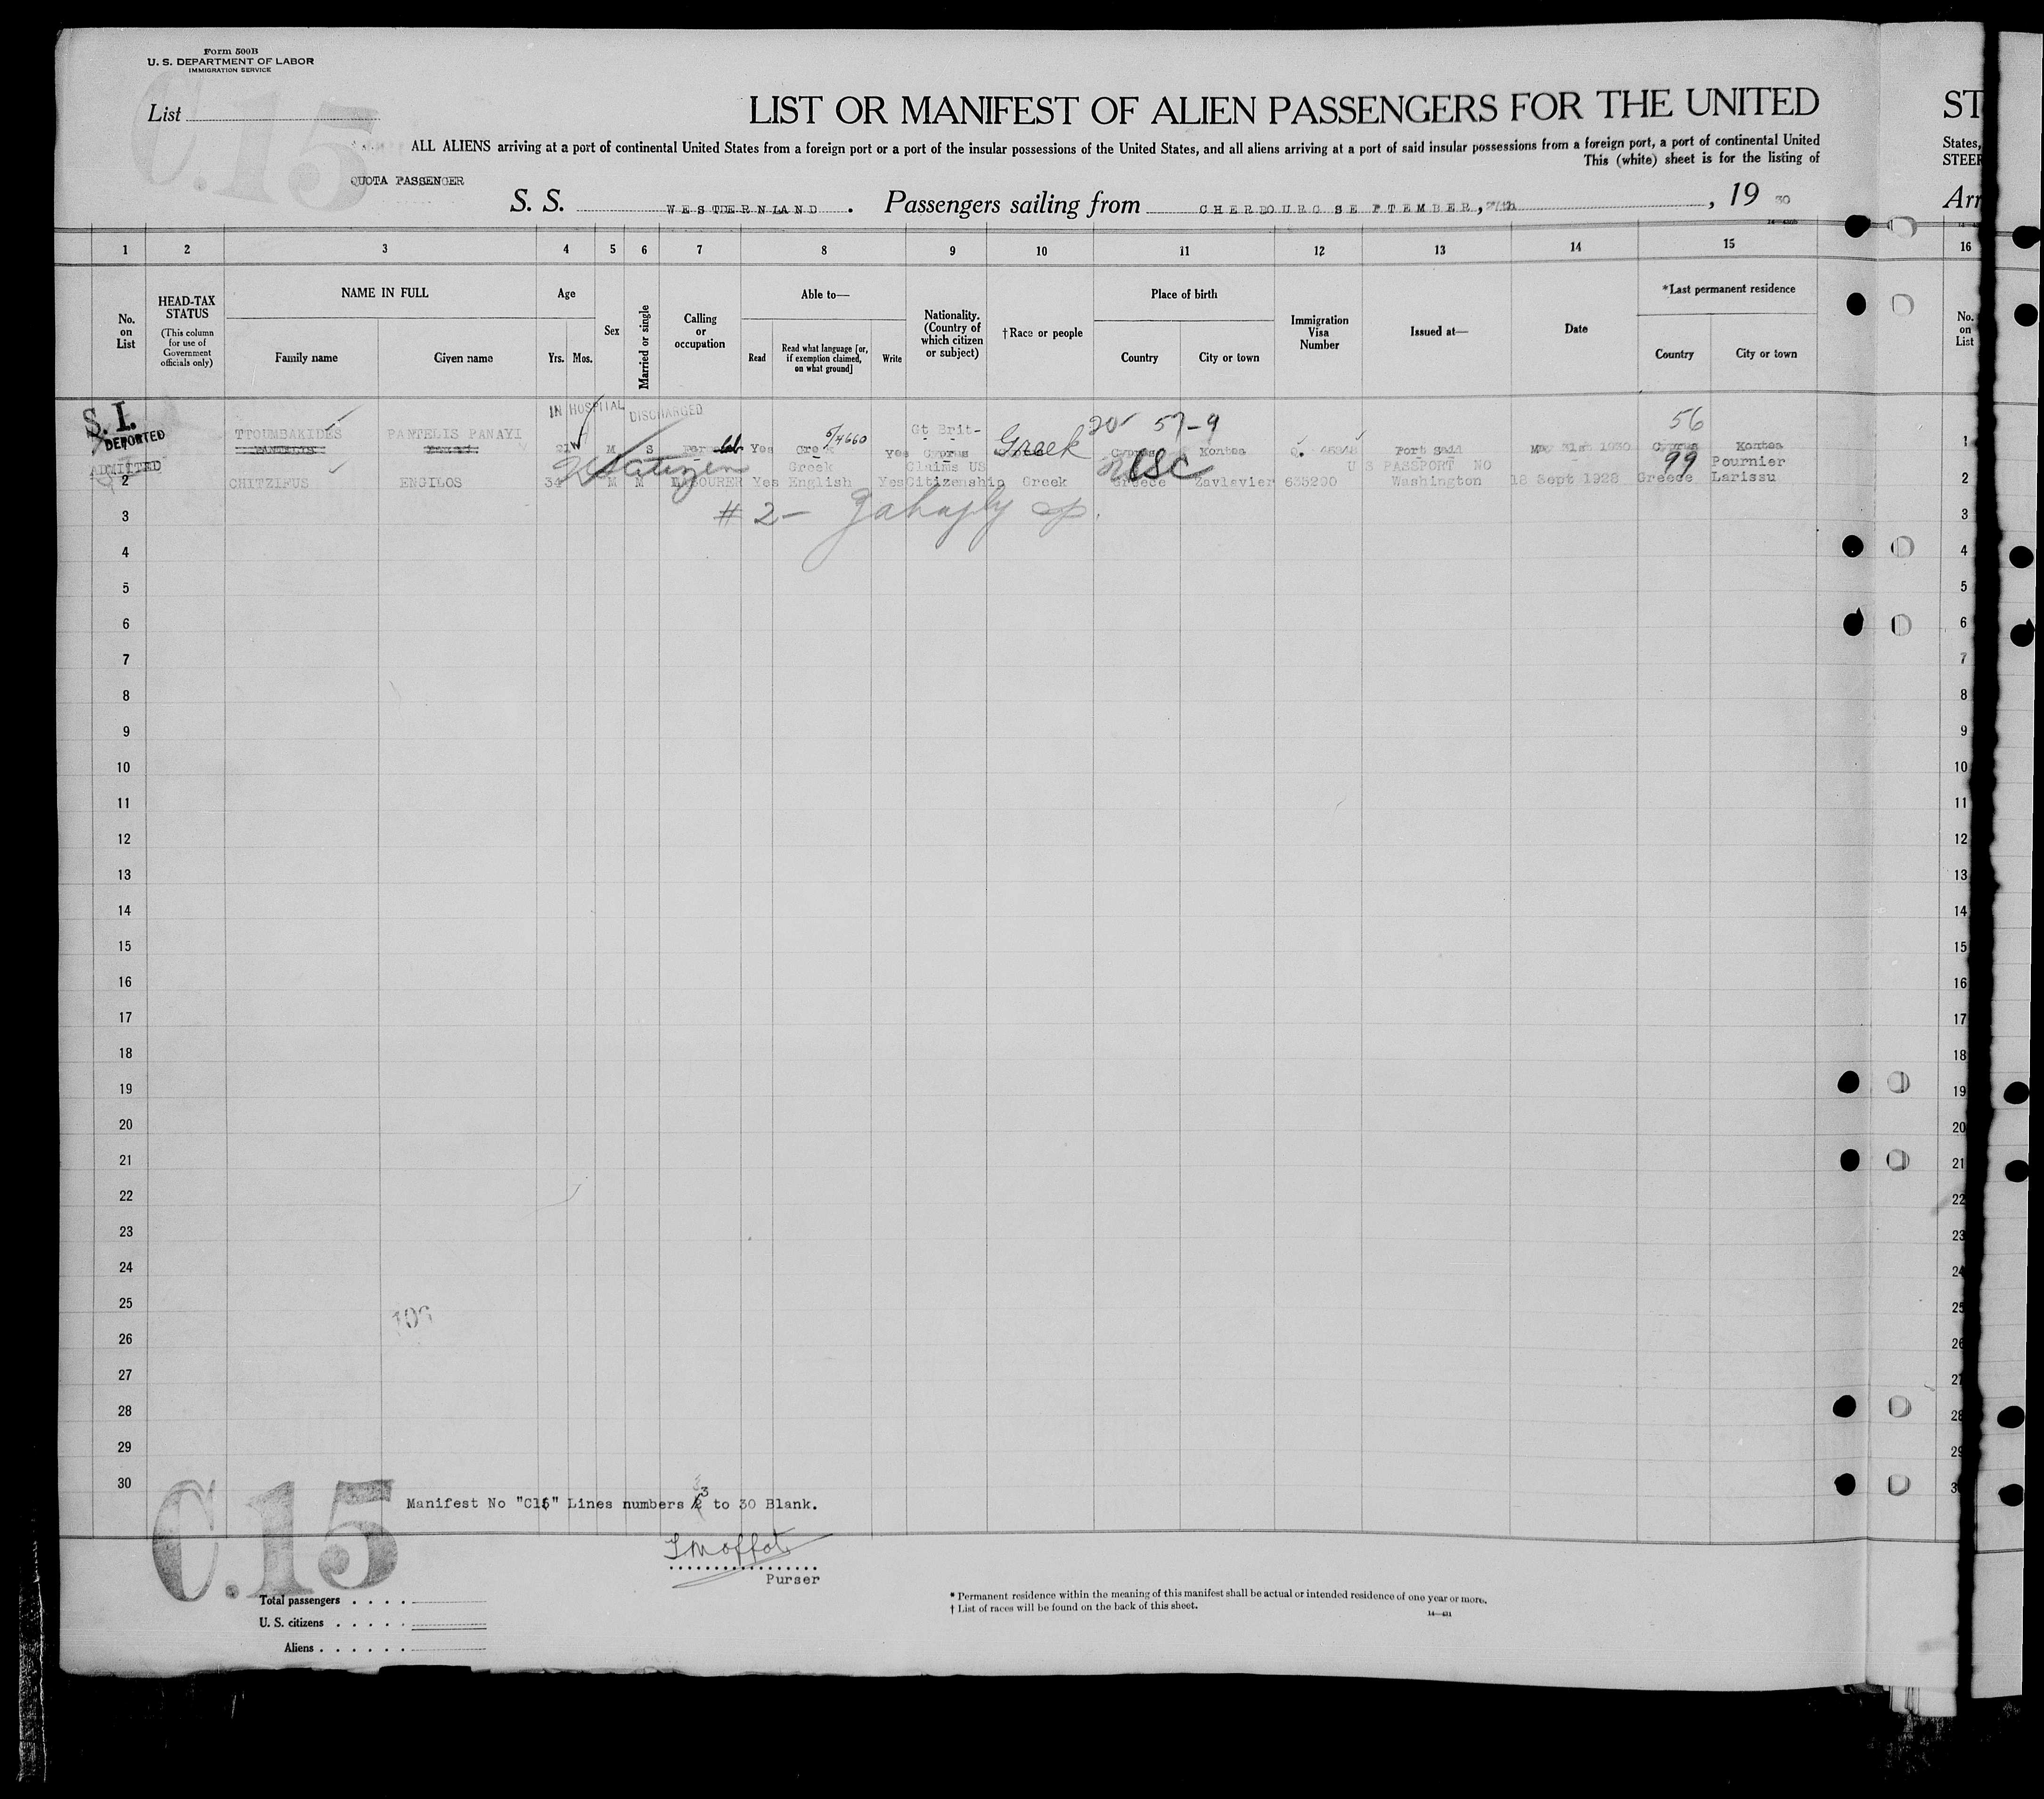 Form 500B
U. S. DEPARTMENT OF LABOR
IMMIGRATION SERVICE
C.15
List
LIST OR MANIFEST OF ALIEN PASSENGERS FOR THE UNITED
ST
ALL ALIENS arriving at a port of continental United States from a foreign port or a port of the insular possessions of the United States, and all aliens arriving at a port of said insular possessions from a foreign port, a port of continental United
States,
This (white) sheet is for the listing of
STEER
QUOTA PASSENGER
S. S. WESTERNLAND. Passengers sailing from CHERBOURG SEPTEMBER, , 19 30
Arr
1 2 3 4 5 6 7 8 9 10 11 12 13 14 15 16
No. on List
HEAD-TAX STATUS
(This column for use of Government officials only)
NAME IN FULL
Family name
Given name
Age
Yrs. Mos.
Sex
Married or single
Calling or occupation
Able to—
Read
Read what language [or, if exemption claimed, on what ground]
Write
Nationality. (Country of which citizen or subject)
†Race or people
Place of birth
Country
City or town
Immigration Visa Number
Issued at—
Date
*Last permanent residence
Country
City or town
No. on List
S. I.
DEPORTED
IN HOSPITAL DISCHARGED
20 57-9 56
TTOUMBAKIDES PANTELIS PANAYI 5/4660 Gt Brit-
1 PANTELIS 21 M S Yes Greek Yes Cyprus Greek Cyprus Kontea Q. Port Said May 31st 1930 Cyprus Kontea 1
ADMITTED
US Citizen Greek Claims US USC U S PASSPORT NO 99 Pournier
2 CHITZIFUS ENGILOS 34 M M LABOURER Yes English Yes Citizenship Greek Greece Zavlavier 635200 Washington 18 Sept 1928 Greece Larissu 2
3 # 2— 3
4 4
5 5
6 6
7 7
8 8
9 9
10 10
11 11
12 12
13 13
14 14
15 15
16 16
17 17
18 18
19 19
20 20
21 21
22 22
23 23
24 24
25 25
26 26
27 27
28 28
29 29
30 3
Manifest No "C15" Lines numbers 3 to 30 Blank.
C.15
Moffat
Purser
Total passengers
U. S. citizens
Aliens
* Permanent residence within the meaning of this manifest shall be actual or intended residence of one year or more.
† List of races will be found on the back of this sheet.